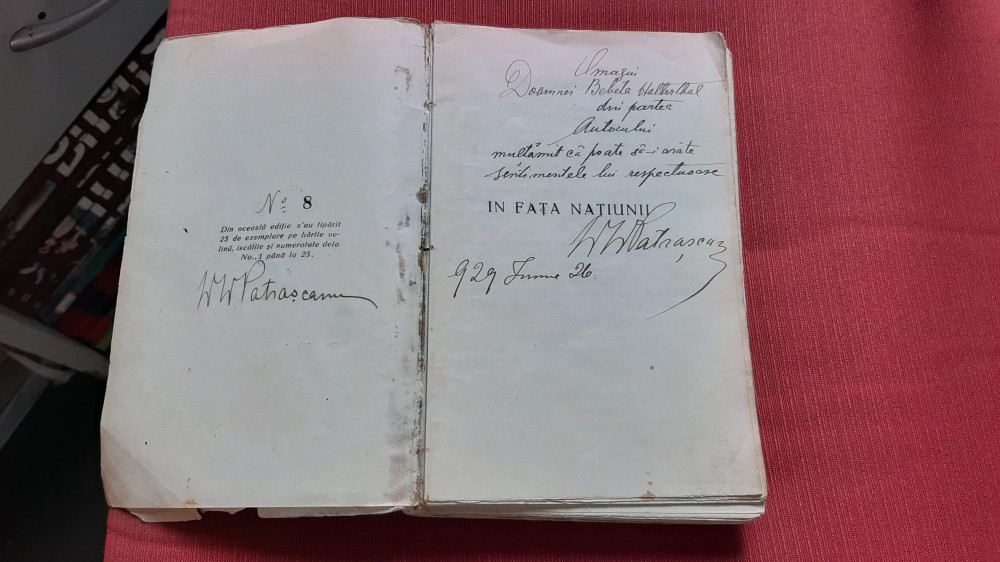 No 8
Din această ediție s'au tipărit
25 de exemplare pe hârtie ve-
lină, iscălite și numerotate dela
No. 1 până la 25.
Patrașcanu
Omagiu
Doamnei Bebeta Halberthal
din partea
Autorului
multămit că poate să-i arate
sentimentele lui respectuoase
IN FAȚA NAȚIUNII
Patrașcanu
929 Iunie 26.